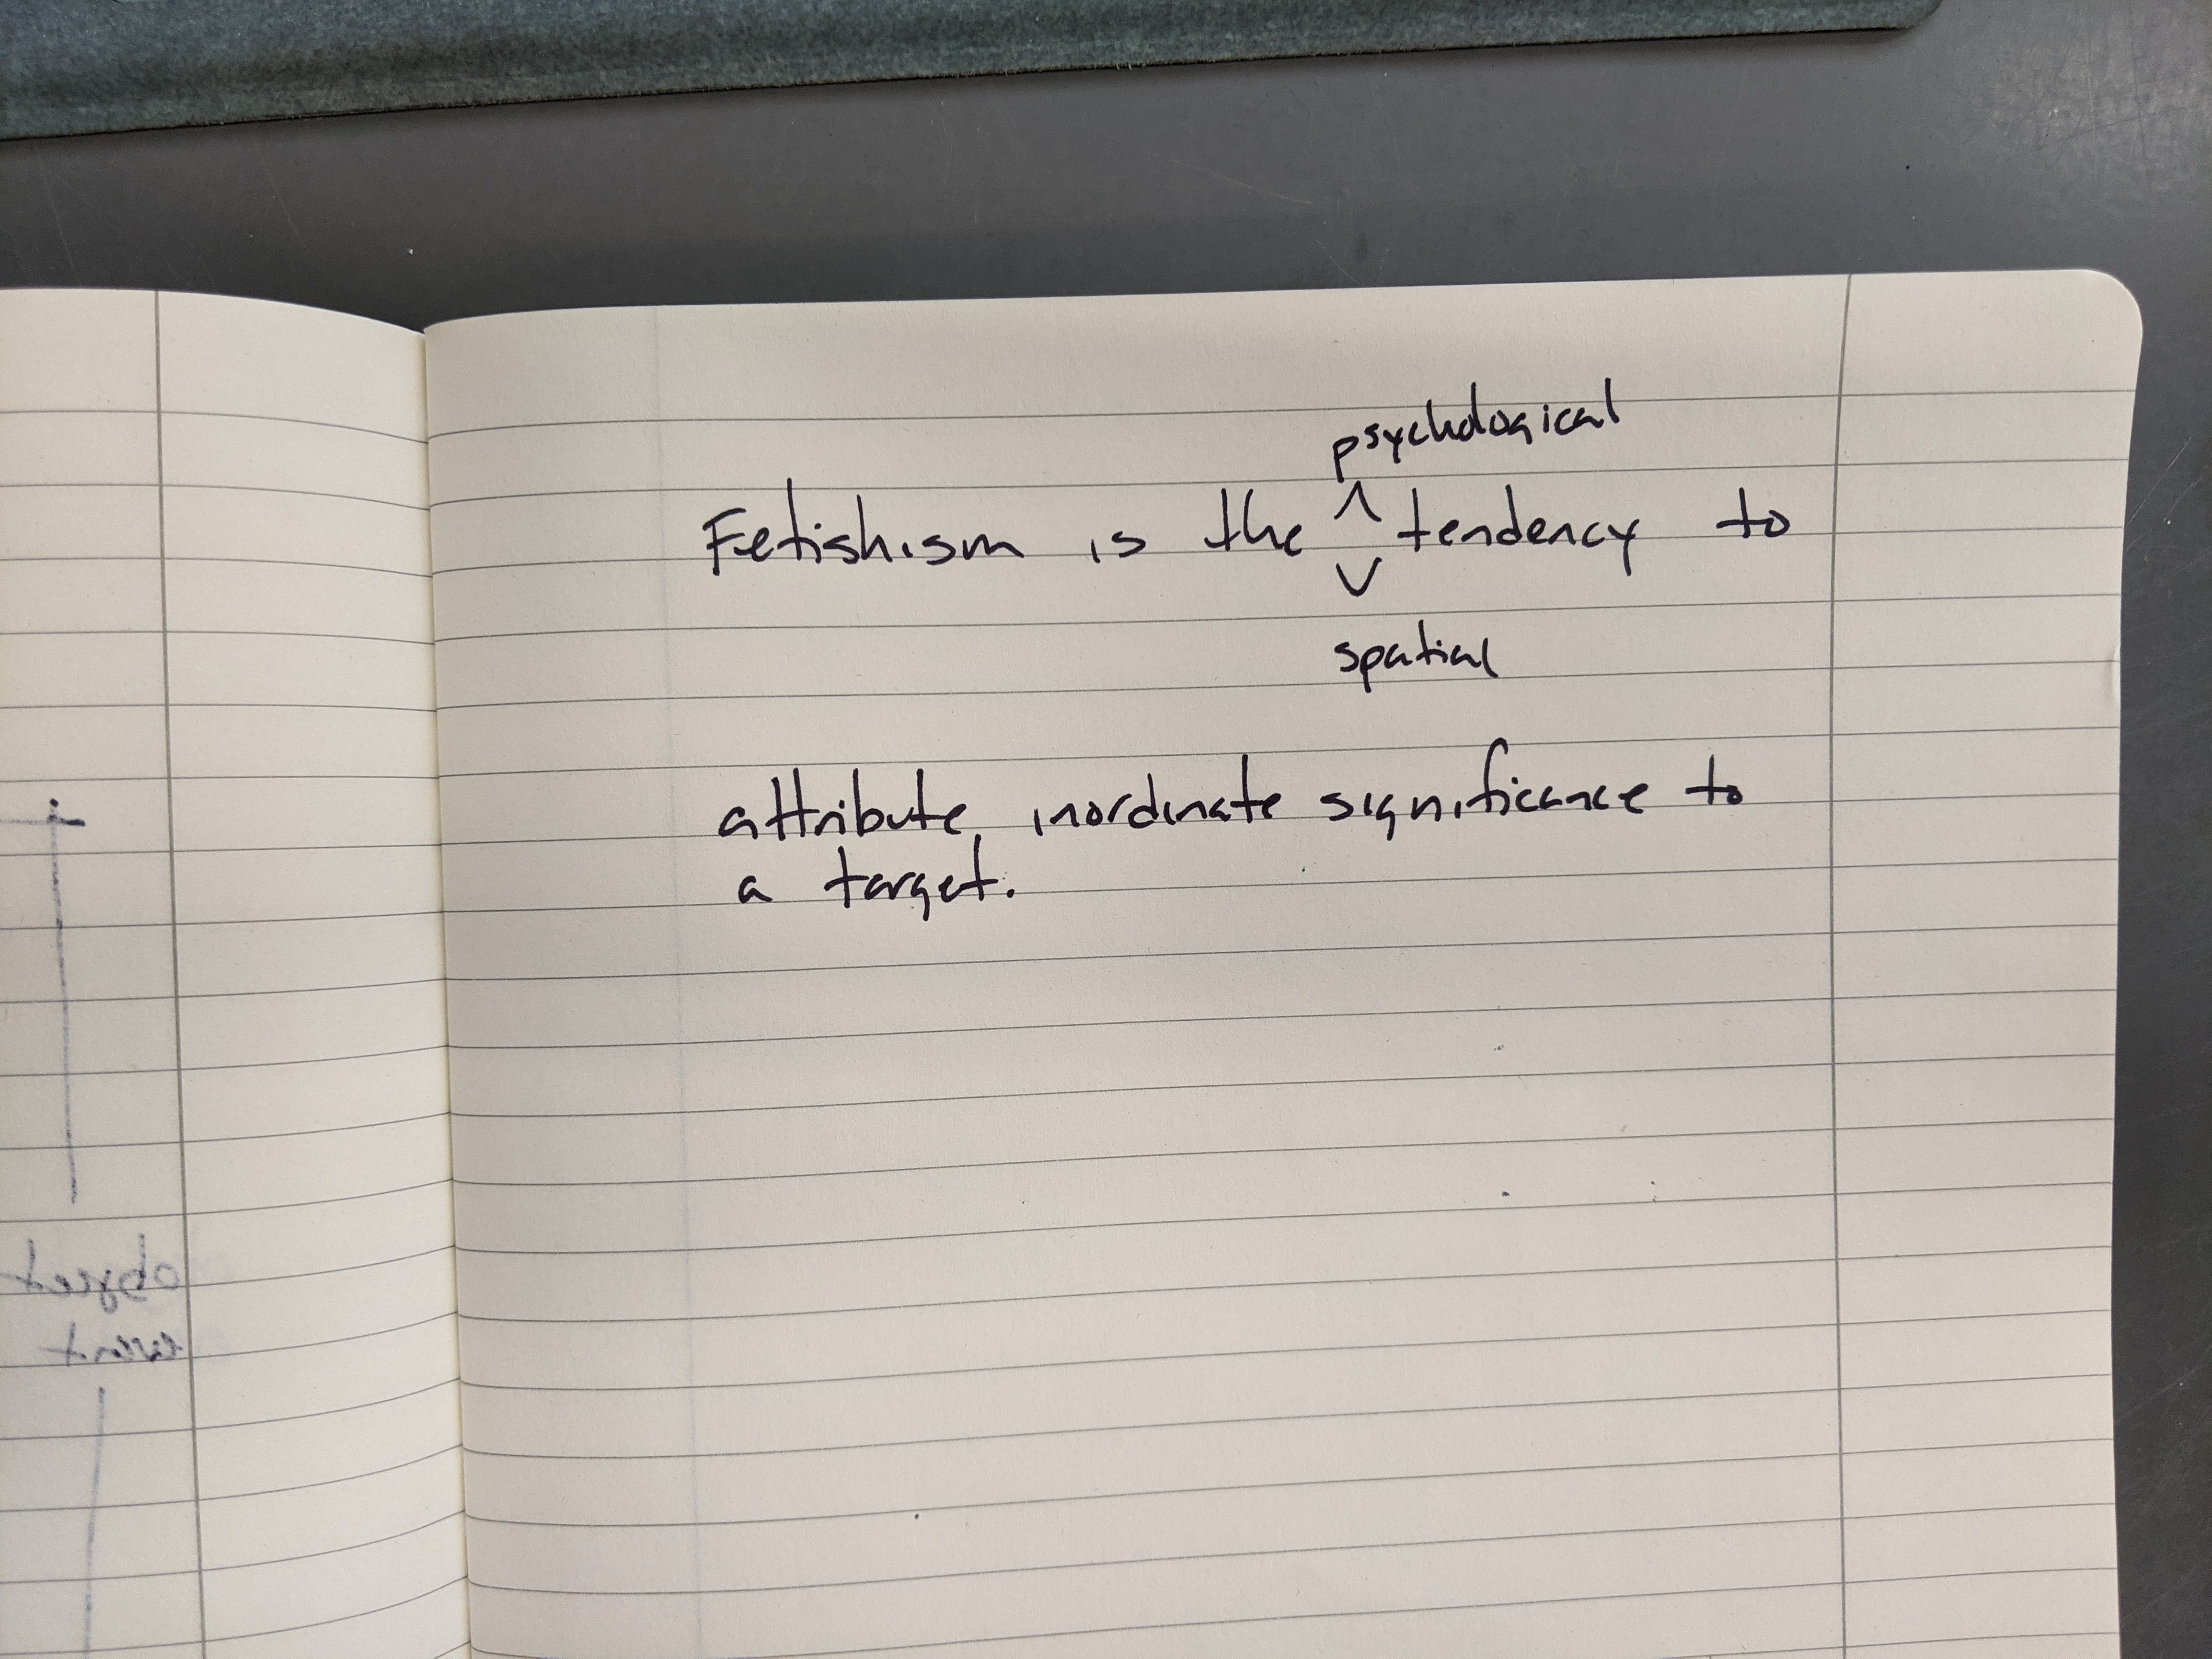 psychological
Fetishism is the ^ tendency to
v
spatial
attribute inordinate significance to
a target.
object
event